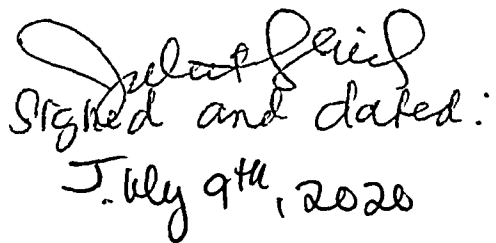 Signed and dated:
July 9th, 2020